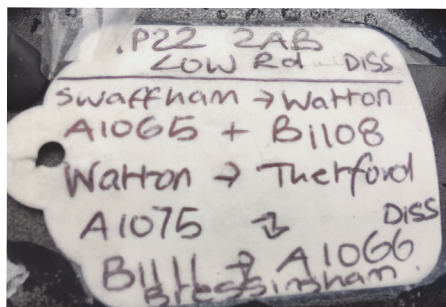 .P22 2AB
LOW Rd DISS
Swaffham → Watton
A1065 + B1108
Watton → Thetford
A1075 ↴ DISS
B1111 → A1066
Bressingham.